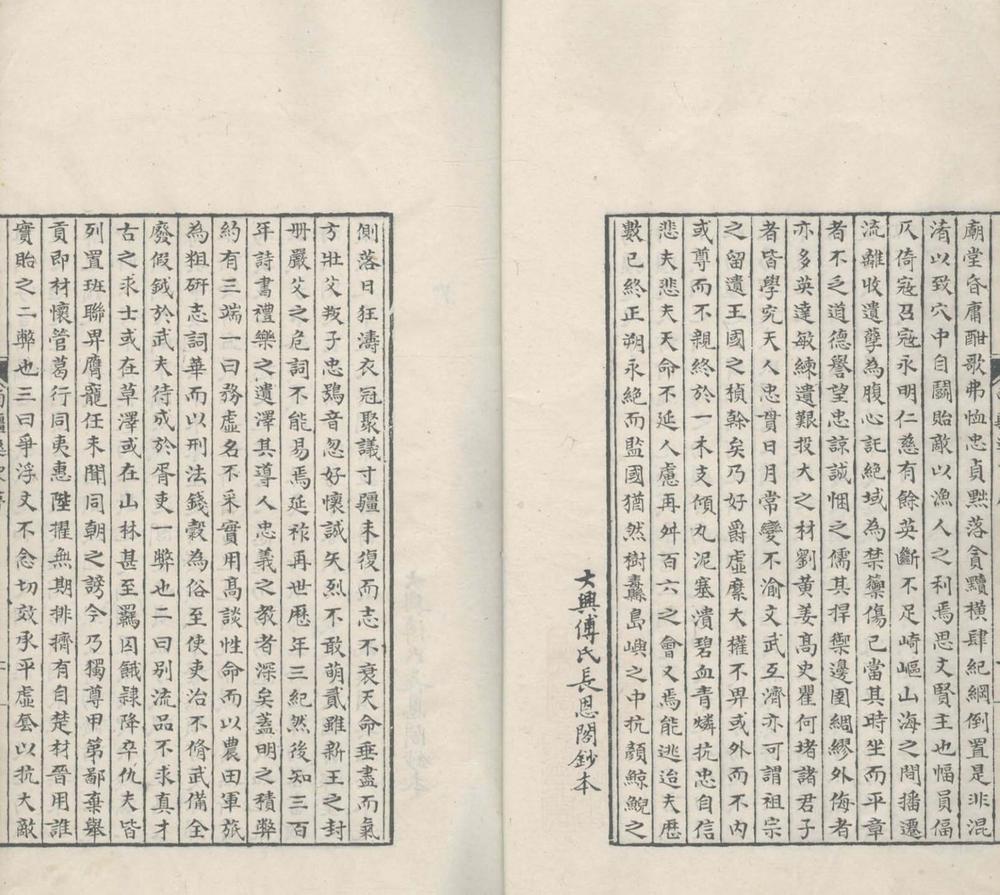 廟堂昏庸酣歌弗恤忠貞黜落貪黷橫肆紀綱倒置是非混
淆以致穴中自鬭貽敵以漁人之利焉思文賢主也幅員偪
仄倚寇召寇永明仁慈有餘英斷不足崎嶇山海之間播遷
流離收遺孽為腹心託絕域為禁籞傷已當其時坐而平章
者不乏道德譽望忠諒誠悃之儒其捍禦邊圉綢繆外侮者
亦多英達敏練遺艱投大之材劉黃姜高史瞿何堵諸君子
者皆學究天人忠貫日月常變不渝文武互濟亦可謂祖宗
之留遺王國之楨榦矣乃好爵虛縻大權不畀或外而不內
或尊而不親終於一木支傾丸泥塞潰碧血青燐抗忠自信
悲夫悲夫天命不延人慮再舛百六之會又焉能逃迨夫歷
數已終正朔永絕而監國猶然樹纛島嶼之中抗顏鯨鯢之
大興傅氏長恩閣鈔本
側落日狂濤衣冠聚議寸疆未復而志不衰天命垂盡而氣
方壯父叛子忠鴞音忽好懷誠矢烈不敢萌貳雖新王之封
冊嚴父之危詞不能易焉延祚再世歷年三紀然後知三百
年詩書禮樂之遺澤其導人忠義之教者深矣蓋明之積弊
約有三端一曰務虛名不采實用高談性命而以農田軍旅
為粗研志詞華而以刑法錢穀為俗至使吏治不脩武備全
廢假鉞於武夫待成於胥吏一弊也二曰別流品不求真才
古之求士或在草澤或在山林甚至羈囚餓隸降卒仇夫皆
列置班聯畀膺寵任未聞同朝之謗今乃獨尊甲第鄙棄舉
貢即材懷管葛行同夷惠陞擢無期排擠有自楚材晉用誰
實貽之二弊也三曰爭浮文不念切效承平虛套以抗大敵